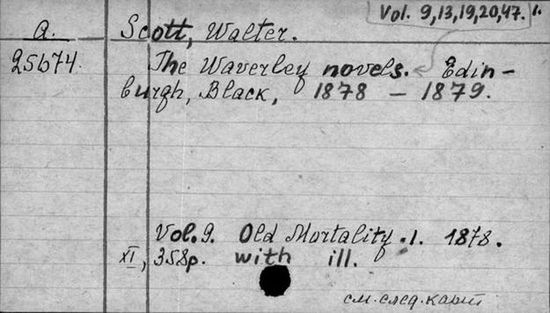 Vol. 9,13,19,20,47. 1.
A. Scott, Walter.
25674 The Waverley novels. Edin-
burgh, Black, 1878 – 1879.
Vol. 9. Old Mortality. 1. 1878.
XI, 358p. with ill.
см. след. карт